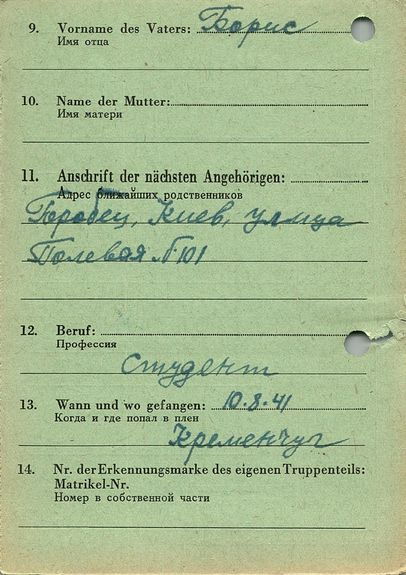 9. Vorname des Vaters: Борис
Имя отца
10. Name der Mutter:
Имя матери
11. Anschrift der nächsten Angehörigen:
Адрес ближайших родственников
Киев, улица
Полевая № 101
12. Beruf:
Профессия
студент
13. Wann und wo gefangen: 10.8.41
Когда и где попал в плен
Кременчуг
14. Nr. der Erkennungsmarke des eigenen Truppenteils:
Matrikel-Nr.
Номер в собственной части